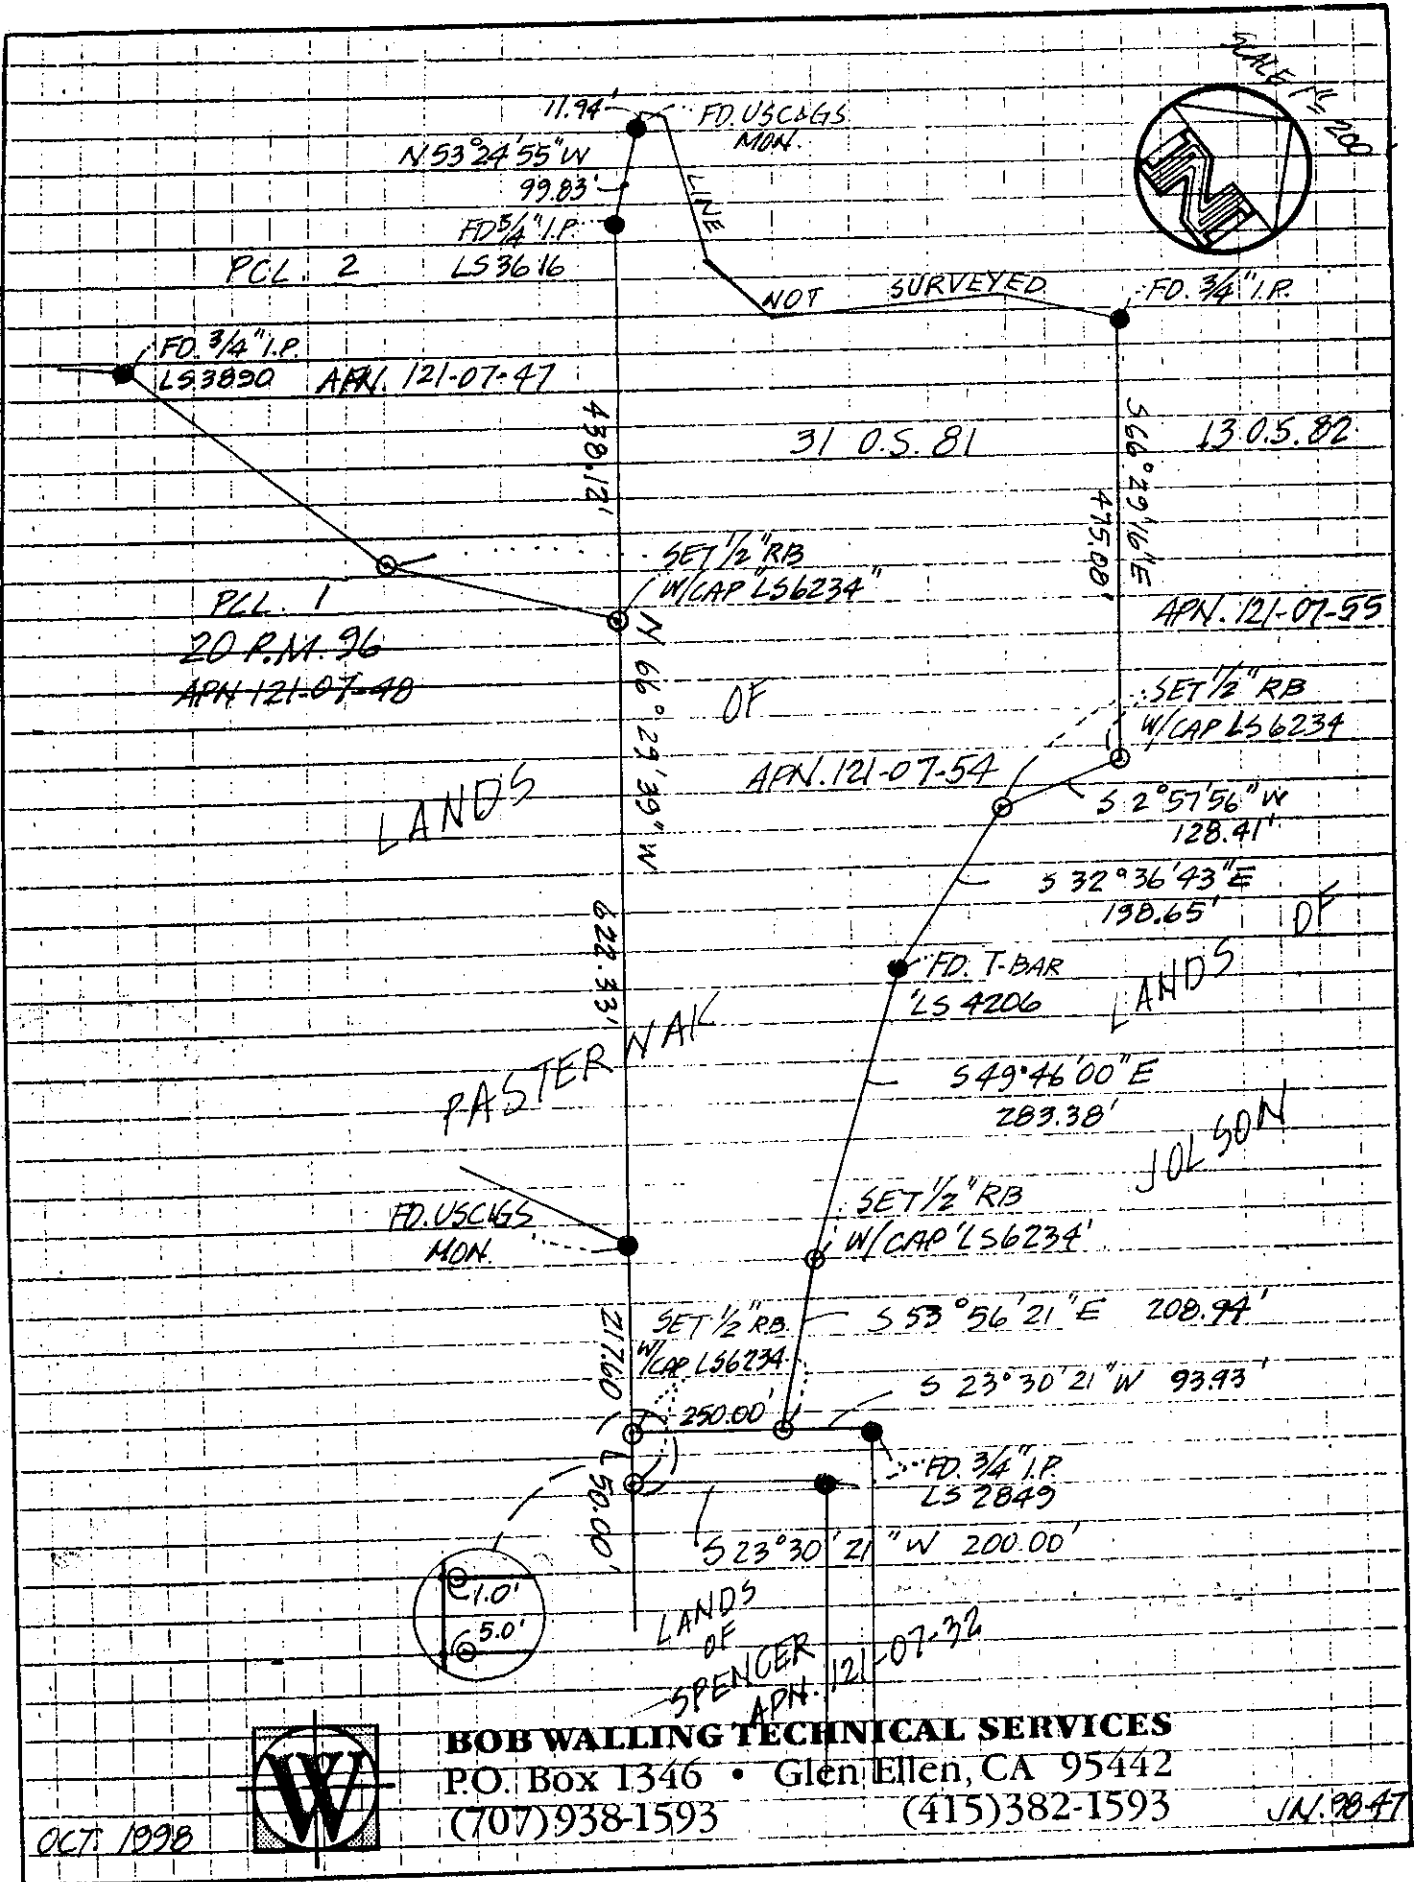 SCALE 1"= 200
11.94'
FD. USC&GS
MON.
N 53°24'55" W
99.83'
LINE
FD 3/4" I.P.
LS 3616
PCL. 2
NOT SURVEYED
FD. 3/4" I.P.
FD. 3/4" I.P.
LS 3890
APN. 121-07-47
438.12'
31 O.S. 81
S 66°29'16" E
475.08'
13 O.S. 82
SET 1/2" RB
W/CAP "LS6234"
PCL. 1
20 P.M. 96
APN 121-07-48
APN. 121-07-55
N 66°29'39" W
OF
SET 1/2" RB
W/CAP LS 6234
APN. 121-07-54
LANDS
S 2°57'56" W
128.41'
S 32°36'43" E
198.65'
622.33'
OF
FD. T-BAR
'LS 4206
LANDS
PASTERNAK
S 49°46'00" E
283.38'
JOLSON
FD. USC&GS
MON.
SET 1/2" RB
W/CAP 'LS6234'
217.60
SET 1/2" RB.
W/CAP LS6234
S 53°56'21" E 208.94'
S 23°30'21" W 93.93'
250.00'
50.00'
FD. 3/4" I.P.
LS 2849
S 23°30'21" W 200.00'
1.0'
5.0'
LANDS
OF
SPENCER
APN. 121-07-32
W
BOB WALLING TECHNICAL SERVICES
P.O. Box 1346 • Glen Ellen, CA 95442
(707)938-1593 (415)382-1593
OCT. 1998
J.N. 98-47